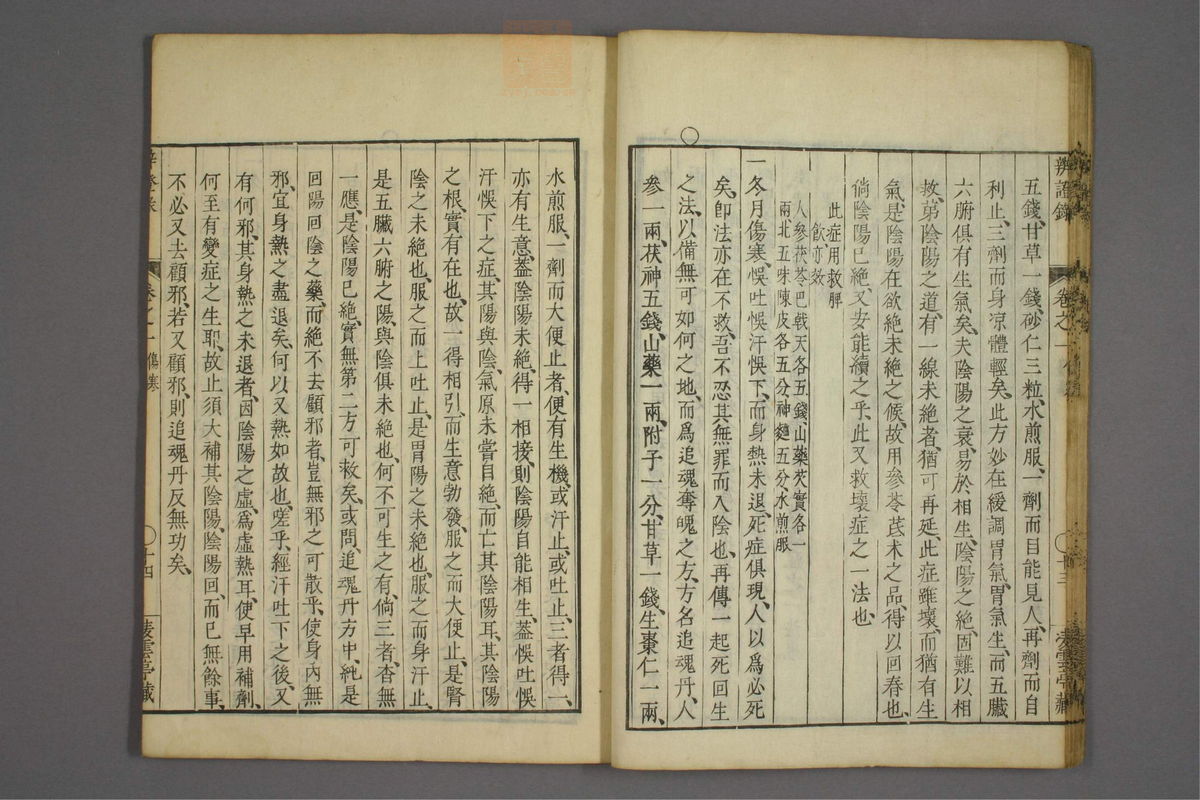 辨證錄 卷之一 十三 凌雲亭藏
五錢、甘草一錢、砂仁三粒、水煎服、一劑而目能見人、再劑而自
利止、三劑而身凉體輕矣、此方妙在緩調胃氣、胃氣生、而五臟
六腑俱有生氣矣、夫陰陽之衰、易於相生、陰陽之絕、固難以相
救、第陰陽之道、有一線未絕者、猶可再延、此症雖壞、而猶有生
氣、是陰陽在欲絕未絕之候、故用參苓芪朮之品、得以回春也、
倘陰陽已絕、又安能續之乎、此又救壞症之一法也、
此症用救脾
飲亦效
人參茯苓巴戟天各五錢、山藥芡實各一
兩北五味陳皮各五分神麯五分水煎服
一冬月傷寒、悞吐悞汗悞下、而身熱未退、死症俱現、人以爲必死
矣、卽法亦在不救、吾不忍其無罪而入陰也、再傳一起死回生
之法、以備無可如何之地、而爲追魂奪魄之方、方名追魂丹、人
參一兩、茯神五錢、山藥一兩、附子一分、甘草一錢、生棗仁一兩、
水煎服、一劑而大便止者、便有生機、或汗止、或吐止、三者得一、
亦有生意、葢陰陽未絕、得一相接、則陰陽自能相生、葢悞吐悞
汗悞下之症、其陽與陰氣原未嘗自絕、而亡其陰陽耳、其陰陽
之根、實有在也、故一得相引、而生意勃發、服之而大便止、是腎
陰之未絕也、服之而上吐止、是胃陽之未絕也、服之而身汗止、
是五臟六腑之陽、與陰俱未絕也、何不可生之有、倘三者杳無
一應、是陰陽已絕、實無第二方可救矣、或問、追魂丹方中、純是
回陽回陰之藥、而絕不去顧邪者、豈無邪之可散乎、使身內無
邪、宜身熱之盡退矣、何以又熱如故也、嗟乎、經汗吐下之後、又
有何邪、其身熱之未退者、因陰陽之虛、爲虛熱耳、使早用補劑、
何至有變症之生耶、故止須大補其陰陽、陰陽回、而已無餘事、
不必又去顧邪、若又顧邪、則追魂丹反無功矣、
辨證錄 卷之一 傷寒 十四 凌雲亭藏